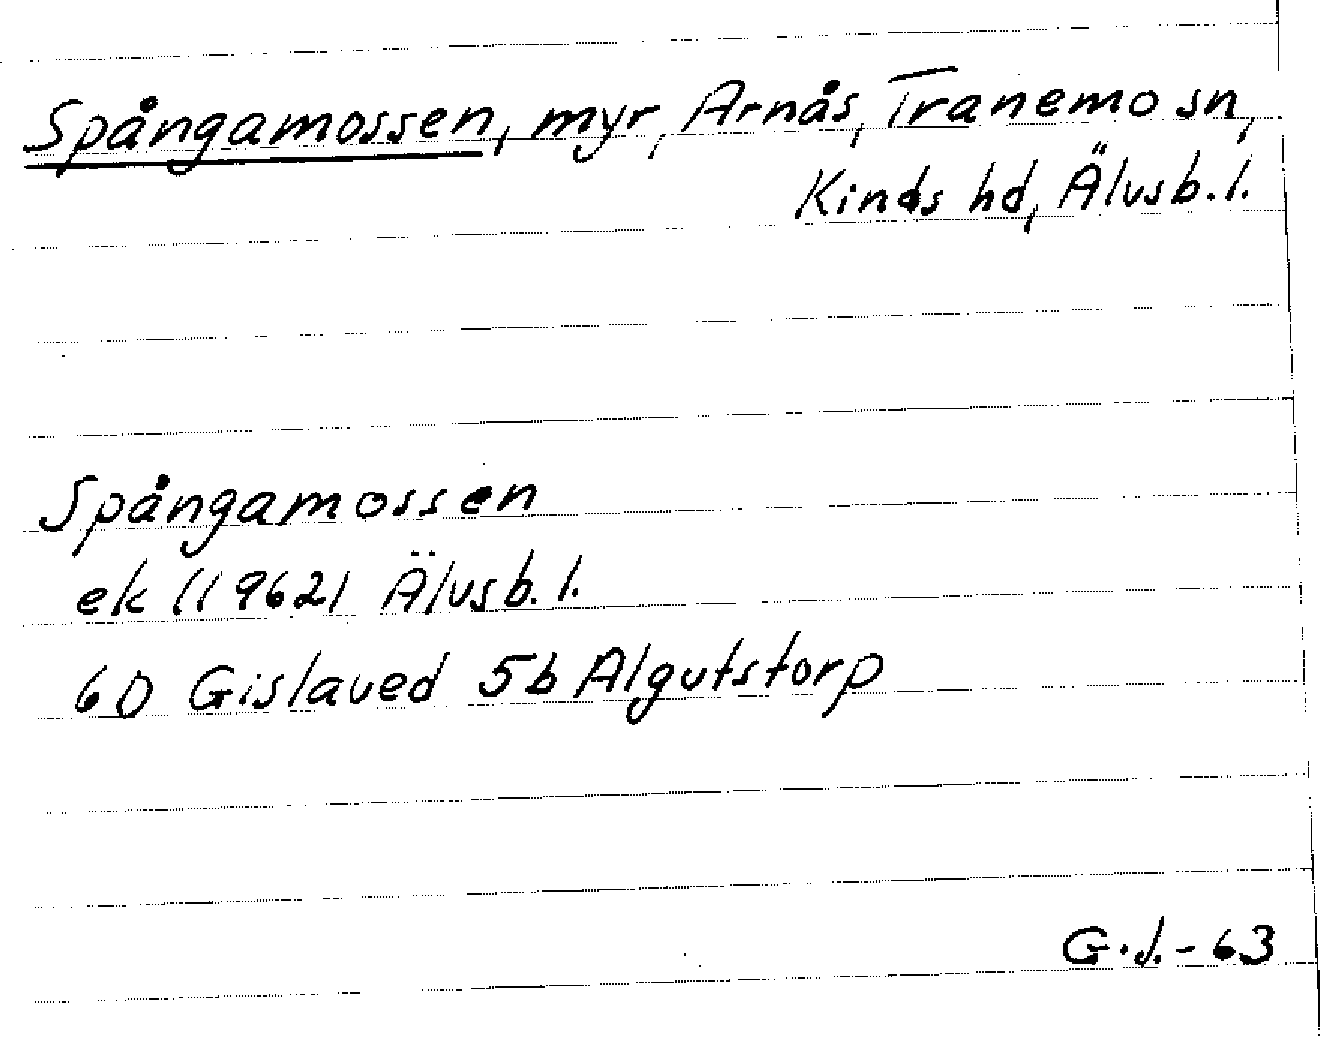 Spångamossen, myr, Arnås, Tranemo sn,
Kinds hd, Älvsb. l.
Spångamossen
ek (1962) Älvsb. l.
6D Gislaved 5b Algutstorp
G. J. - 63